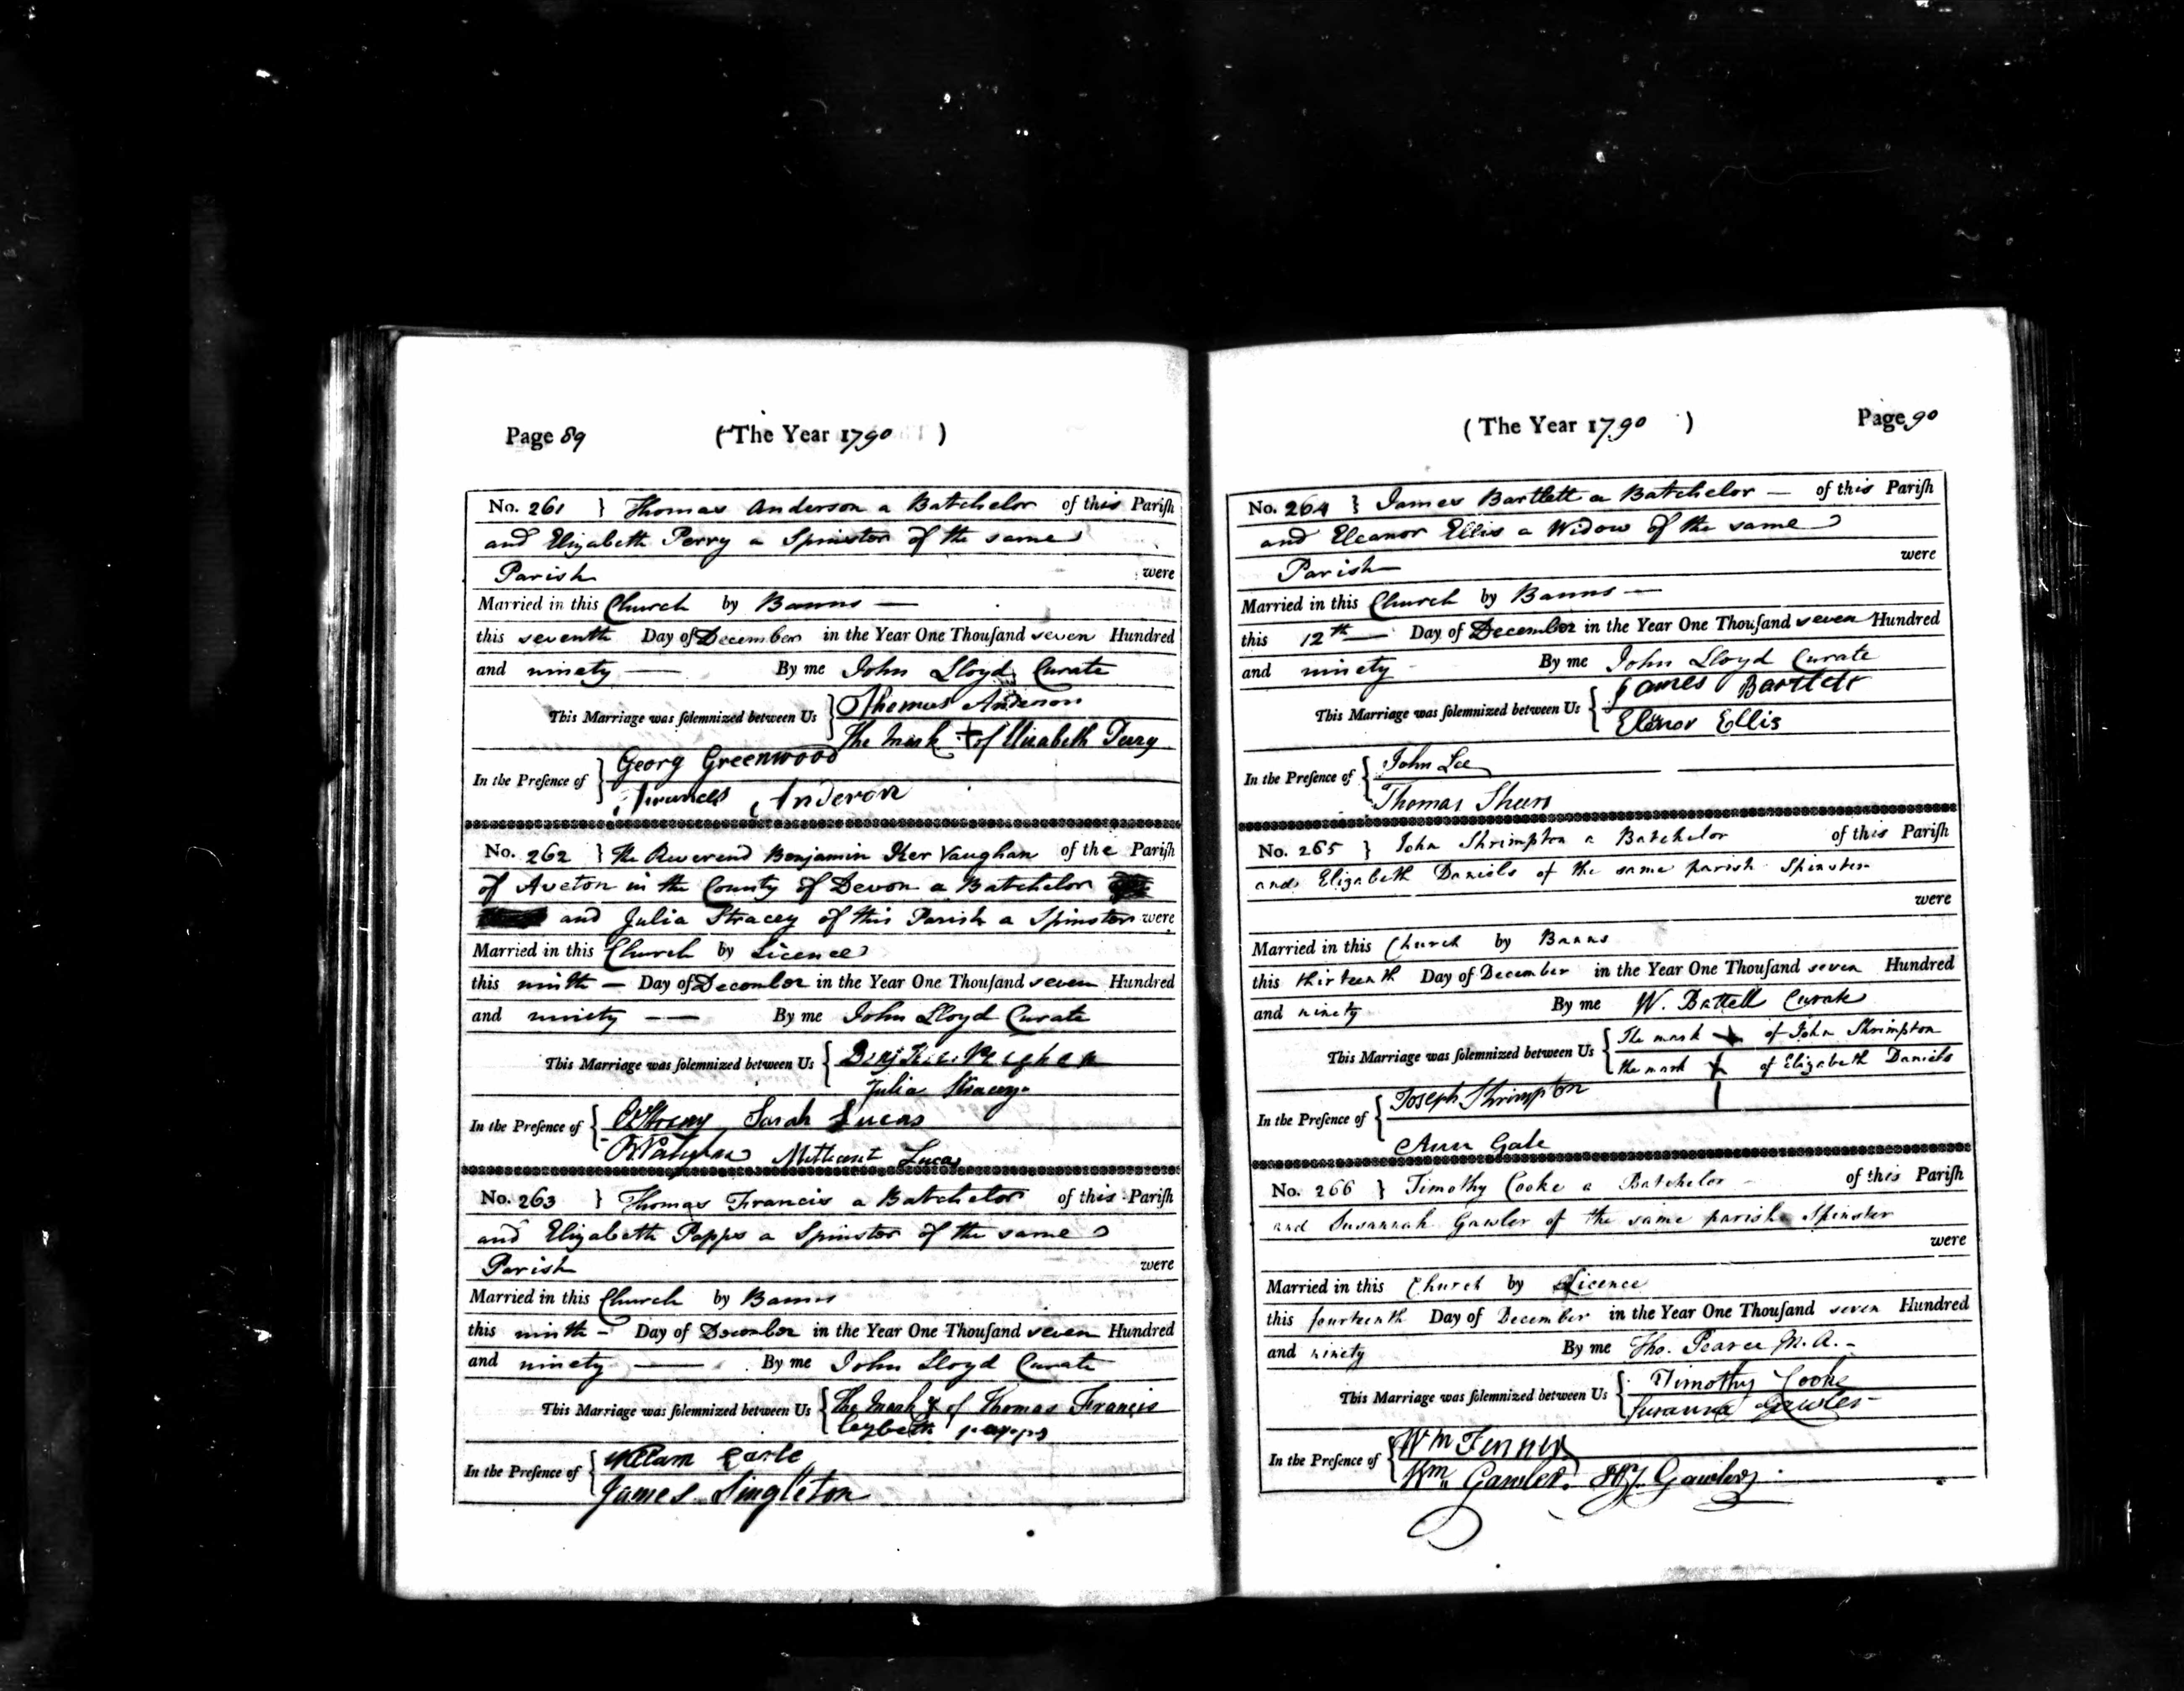 Page 89 (The Year 1790 )
No. 261 } Thomas Anderson a Batchelor of this Pariſh
and Elizabeth Perry a Spinster of the same
Parish were
Married in this Church by Banns —
this seventh Day of December in the Year One Thouſand seven Hundred
and ninety — By me John Lloyd Curate
This Marriage was ſolemnized between Us { Thomas Anderson
the mark + of Elizabeth Perry
In the Preſence of } Georg Greenwood
Anderon
No. 262 } The Reverend Benjamin Ker Vaughan of the Pariſh
of Aveton in the County of Devon a Batchelor
and Julia Stracey of this Parish a Spinster were
Married in this Church by Licence
this ninth — Day of December in the Year One Thouſand seven Hundred
and ninety — By me John Lloyd Curate
This Marriage was ſolemnized between Us { Benj Ker Vaughan
Julia Stracey
In the Preſence of { Sarah Lucas
Lucas
No. 263 } Thomas Francis a Batchelor of this Pariſh
and Elizabeth Papps a Spinster of the same
Parish were
Married in this Church by Banns
this ninth — Day of December in the Year One Thouſand seven Hundred
and ninety — By me John Lloyd Curate
This Marriage was ſolemnized between Us { the mark x of Thomas Francis
papps
In the Preſence of { Earle
James Singleton
(The Year 1790 ) Page 90
No. 264 } James Bartlett a Batchelor — of this Pariſh
and Eleanor Ellis a Widow of the same
Parish were
Married in this Church by Banns —
this 12th — Day of December in the Year One Thouſand seven Hundred
and ninety By me John Lloyd Curate
This Marriage was ſolemnized between Us { James Bartlett
Elenor Ellis
In the Preſence of { John Lee
Thomas
No. 265 } John Shrimpton a Batchelor of this Pariſh
and Elizabeth Daniels of the same parish Spinster
were
Married in this Church by Banns
this thirteenth Day of December in the Year One Thouſand seven Hundred
and ninety By me W. Battell Curate
This Marriage was ſolemnized between Us { The mark + of John Shrimpton
the mark + of Elizabeth Daniels
In the Preſence of { Joseph Shrimpton
Ann Gale
No. 266 } Timothy Cooke a Batchelor of this Pariſh
and Susannah Gawler of the same parish Spinster
were
Married in this Church by Licence
this fourteenth Day of December in the Year One Thouſand seven Hundred
and ninety By me Tho. Pearce M.A. -
This Marriage was ſolemnized between Us { Timothy Cooke
Susanna Gawler
In the Preſence of { Wm Finney
Wm Gawler. Gawler